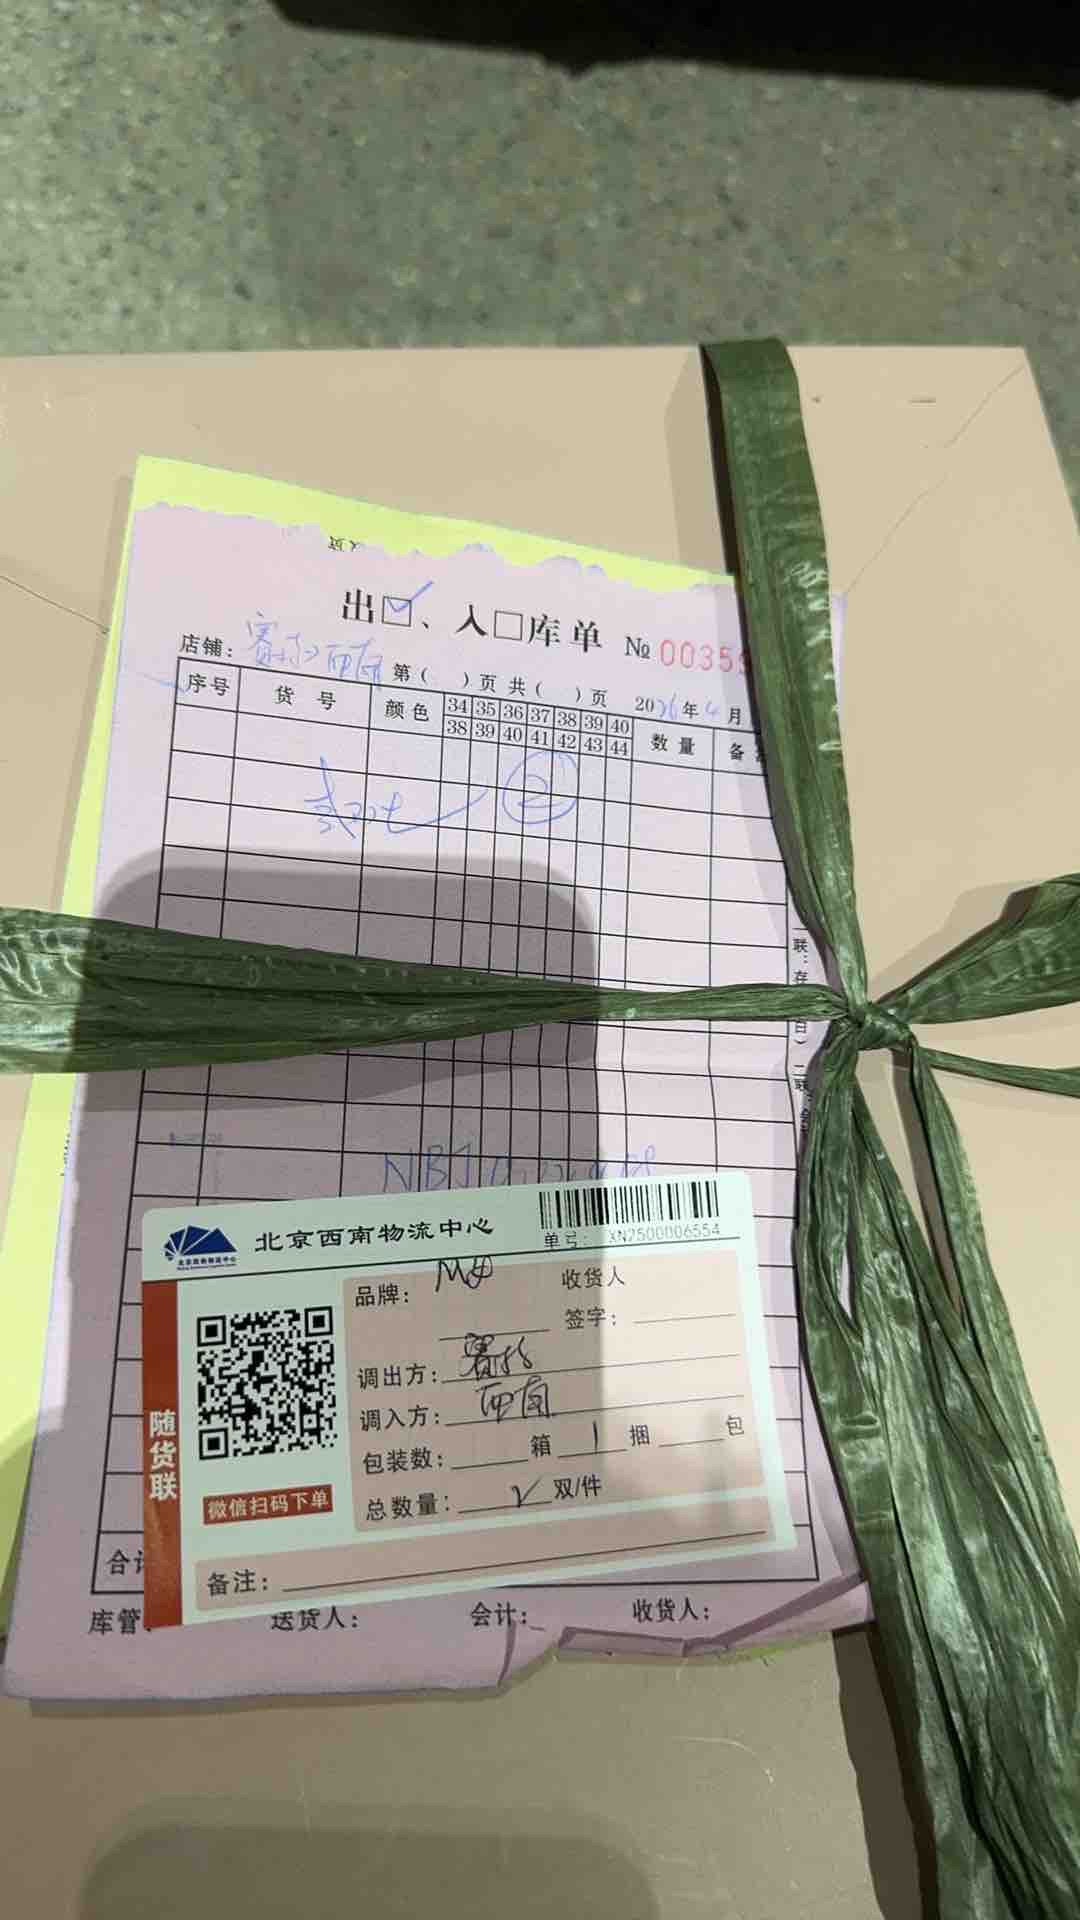 出☑、入□库单 № 0035
店铺：赛特西南 第（ ）页 共（ ）页 2026年4月
序号 货号 颜色 34 35 36 37 38 39 40 数量 备
38 39 40 41 42 43 44
贰双七 ②
北京西南物流中心
单号: XN2500006554
品牌： 收货人
签字：
调出方：赛特
调入方：西南
包装数： 箱 1 捆 包
总数量： 2 双/件
随货联
微信扫码下单
备注：
合计
库管： 送货人： 会计： 收货人：